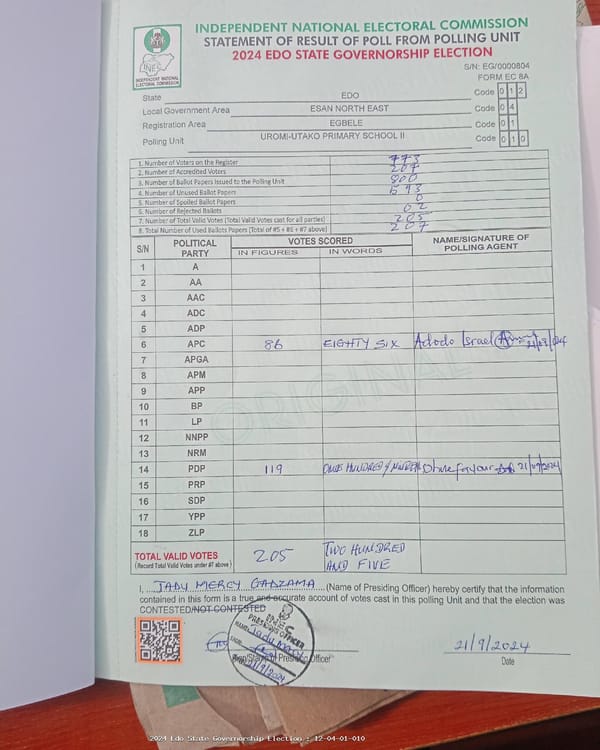 INDEPENDENT NATIONAL ELECTORAL COMMISSION
STATEMENT OF RESULT OF POLL FROM POLLING UNIT
2024 EDO STATE GOVERNORSHIP ELECTION
INEC
INDEPENDENT NATIONAL ELECTORAL COMMISSION
S/N: EG/0000804
FORM EC 8A
State EDO Code 0 1 2
Local Government Area ESAN NORTH EAST Code 0 4
Registration Area EGBELE Code 0 1
Polling Unit UROMI-UTAKO PRIMARY SCHOOL II Code 0 1 0
1. Number of Voters on the Register 773
2. Number of Accredited Voters 207
3. Number of Ballot Papers Issued to the Polling Unit 800
4. Number of Unused Ballot Papers 593
5. Number of Spoiled Ballot Papers 0
6. Number of Rejected Ballots 02
7. Number of Total Valid Votes (Total Valid Votes cast for all parties) 205
8. Total Number of Used Ballots Papers (Total of #5 + #6 + #7 above) 207
S/N POLITICAL PARTY VOTES SCORED NAME/SIGNATURE OF POLLING AGENT
IN FIGURES IN WORDS
1 A
2 AA
3 AAC
4 ADC
5 ADP
6 APC 86 EIGHTY SIX Adodo Israel 21/09/2024
7 APGA
8 APM
9 APP
10 BP
11 LP
12 NNPP
13 NRM
14 PDP 119 favour 21/09/2024
15 PRP
16 SDP
17 YPP
18 ZLP
ORIGINAL
TOTAL VALID VOTES 205 TWO HUNDRED AND FIVE
(Record Total Valid Votes under #7 above)
I, JADU MERCY GADZAMA (Name of Presiding Officer) hereby certify that the information
contained in this form is a true and accurate account of votes cast in this polling Unit and that the election was
CONTESTED/NOT CONTESTED
PRESIDING OFFICER
Sign/Stamp of Presiding Officer
21/9/2024
21/9/2024
Date
2024 Edo State Governorship Election : 12-04-01-010